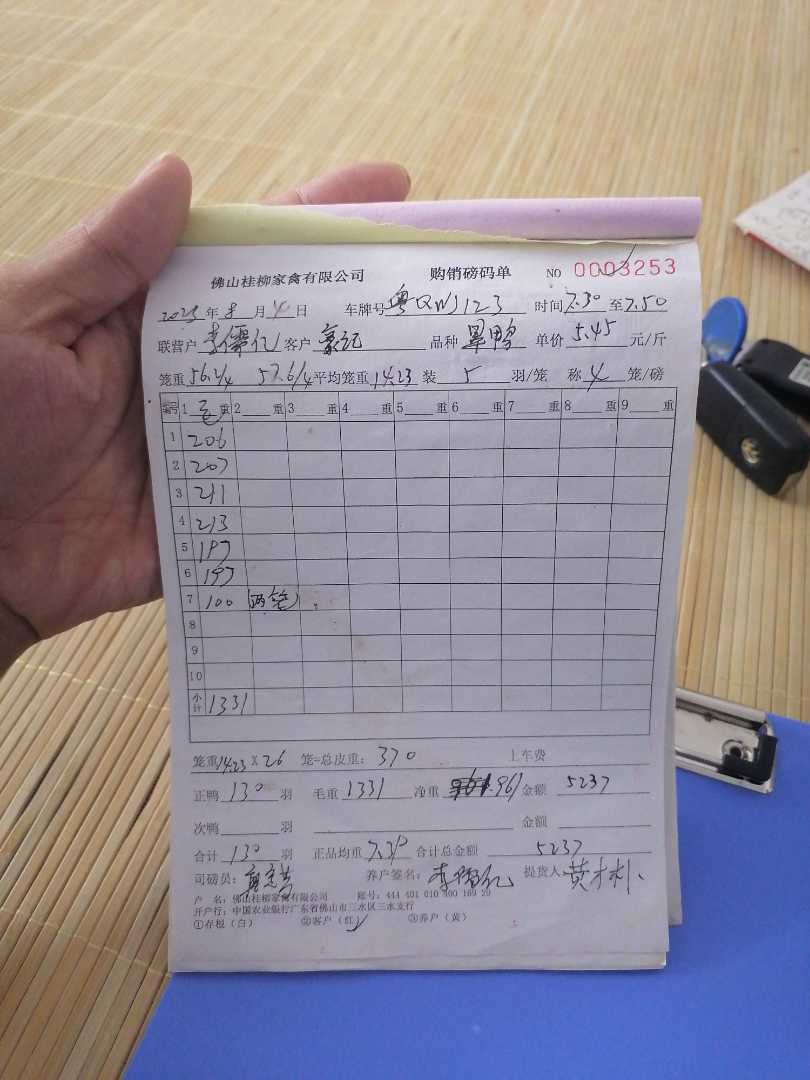 佛山桂柳家禽有限公司 购销磅码单 NO 0003253
2023 年 月 4 日 车牌号 粤QWJ123 时间 7.30 至 7.50
联营户 李儒亿 客户 豪记 品种 单价 5.45 元/斤
笼重 56.2/4 57.6/4 平均笼重 14.23 装 5 羽/笼 称 4 笼/磅
编号 1 毛 重 2 重 3 重 4 重 5 重 6 重 7 重 8 重 9 重
1 206
2 207
3 211
4 213
5 197
6 197
7 100 (两笼)
8
9
10
小计 1331
笼重 14.23 × 26 笼=总皮重: 370 上车费
正鸭 130 羽 毛重 1331 净重 961 金额 5237
次鸭 羽 金额
合计 130 羽 正品均重 7.39 合计总金额 5237
司磅员: 养户签名: 李儒亿 提货人: 黄木朴
户 名: 佛山桂柳家禽有限公司 账号: 444 401 010 400 169 20
开户行: 中国农业银行广东省佛山市三水区三水支行
①存根(白) ②客户(红) ③养户(黄)